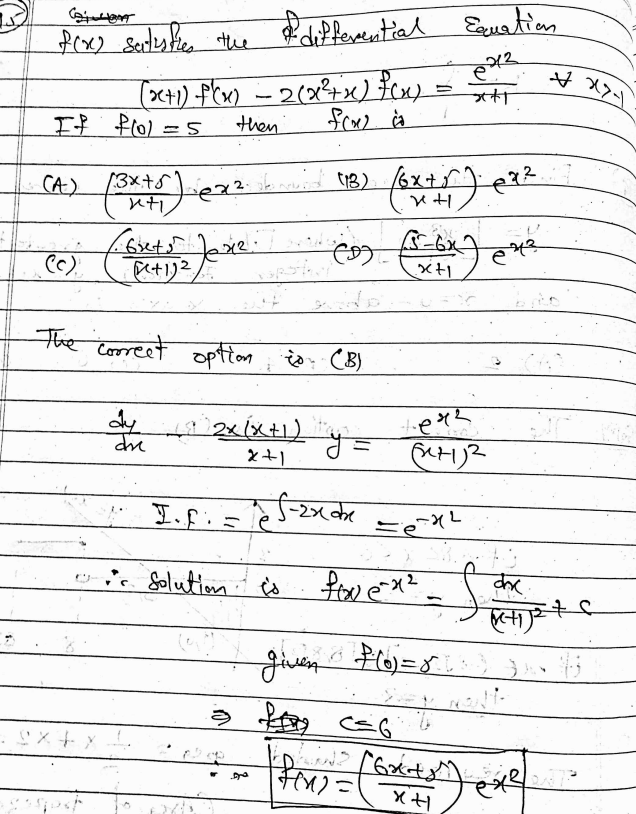 15
f(x) satisfies the differential Equation
(x+1) f'(x) - 2(x²+x) f(x) = e^{x²}/(x+1) ∀ x>-1
If f(0) = 5 then f(x) is
(A) ((3x+5)/(x+1)) e^{x²} (B) ((6x+5)/(x+1)) e^{x²}
(C) ((6x+5)/(x+1)²) e^{x²} (D) ((5-6x)/(x+1)) e^{x²}
The correct option is (B)
dy/dx - (2x(x+1)/(x+1)) y = e^{x²}/(x+1)²
I.F. = e^{∫-2x dx} = e^{-x²}
∴ Solution is f(x) e^{-x²} = ∫ dx/(x+1)² + c
given f(0)=5
⇒ c=6
∴ f(x) = ((6x+5)/(x+1)) e^{x²}